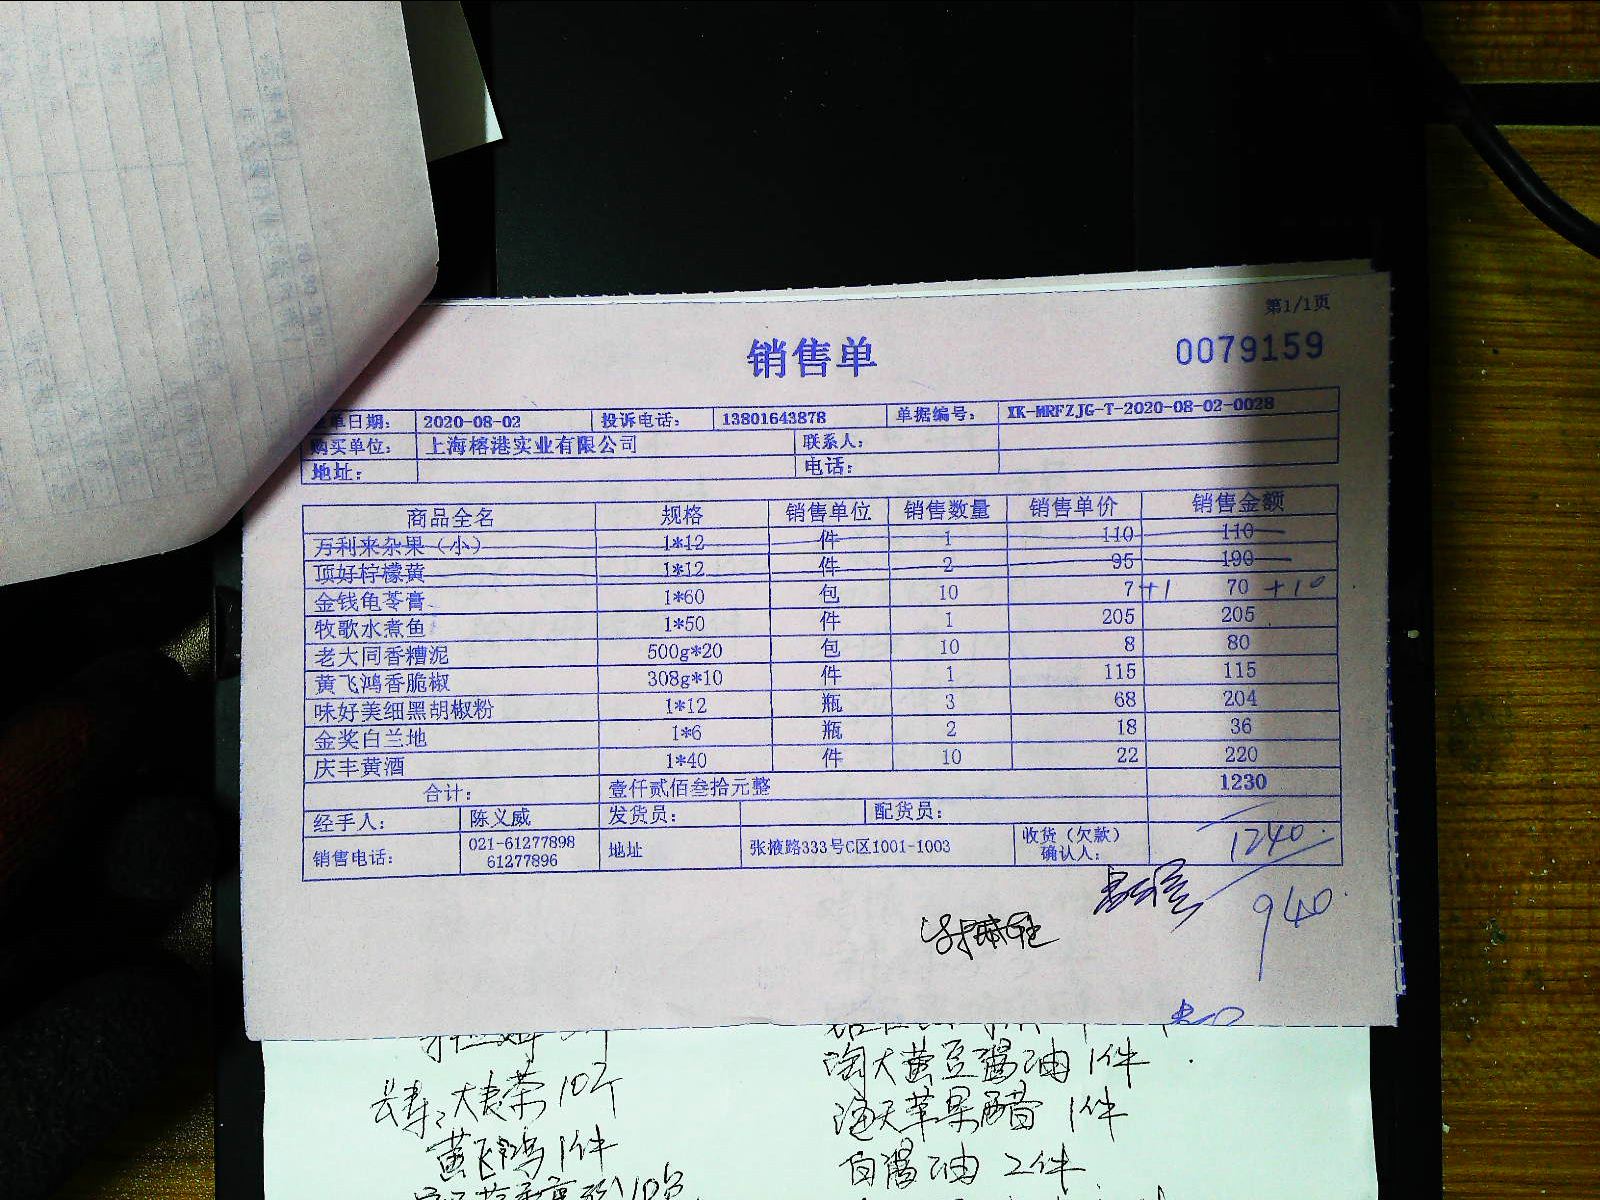 第1/1页
销售单
0079159
单日期: 2020-08-02 投诉电话: 13801643878 单据编号: XK-MRFZJG-T-2020-08-02-0028
购买单位: 上海榕港实业有限公司 联系人:
地址: 电话:
商品全名 规格 销售单位 销售数量 销售单价 销售金额
万利来杂果（小） 1*12 件 1 110 110
顶好柠檬黄 1*12 件 2 95 190
金钱龟苓膏 1*60 包 10 7 +1 70 +10
牧歌水煮鱼 1*50 件 1 205 205
老大同香糟泥 500g*20 包 10 8 80
黄飞鸿香脆椒 308g*10 件 1 115 115
味好美细黑胡椒粉 1*12 瓶 3 68 204
金奖白兰地 1*6 瓶 2 18 36
庆丰黄酒 1*40 件 10 22 220
合计: 壹仟贰佰叁拾元整 1230
经手人: 陈义威 发货员: 配货员:
销售电话: 021-61277898 61277896 地址 张掖路333号C区1001-1003 收货（欠款）确认人:
1240
940
大麦茶 10个
黄飞鸿 1件
淘大黄豆酱油 1件
淘大苹果醋 1件
白酱油 2件